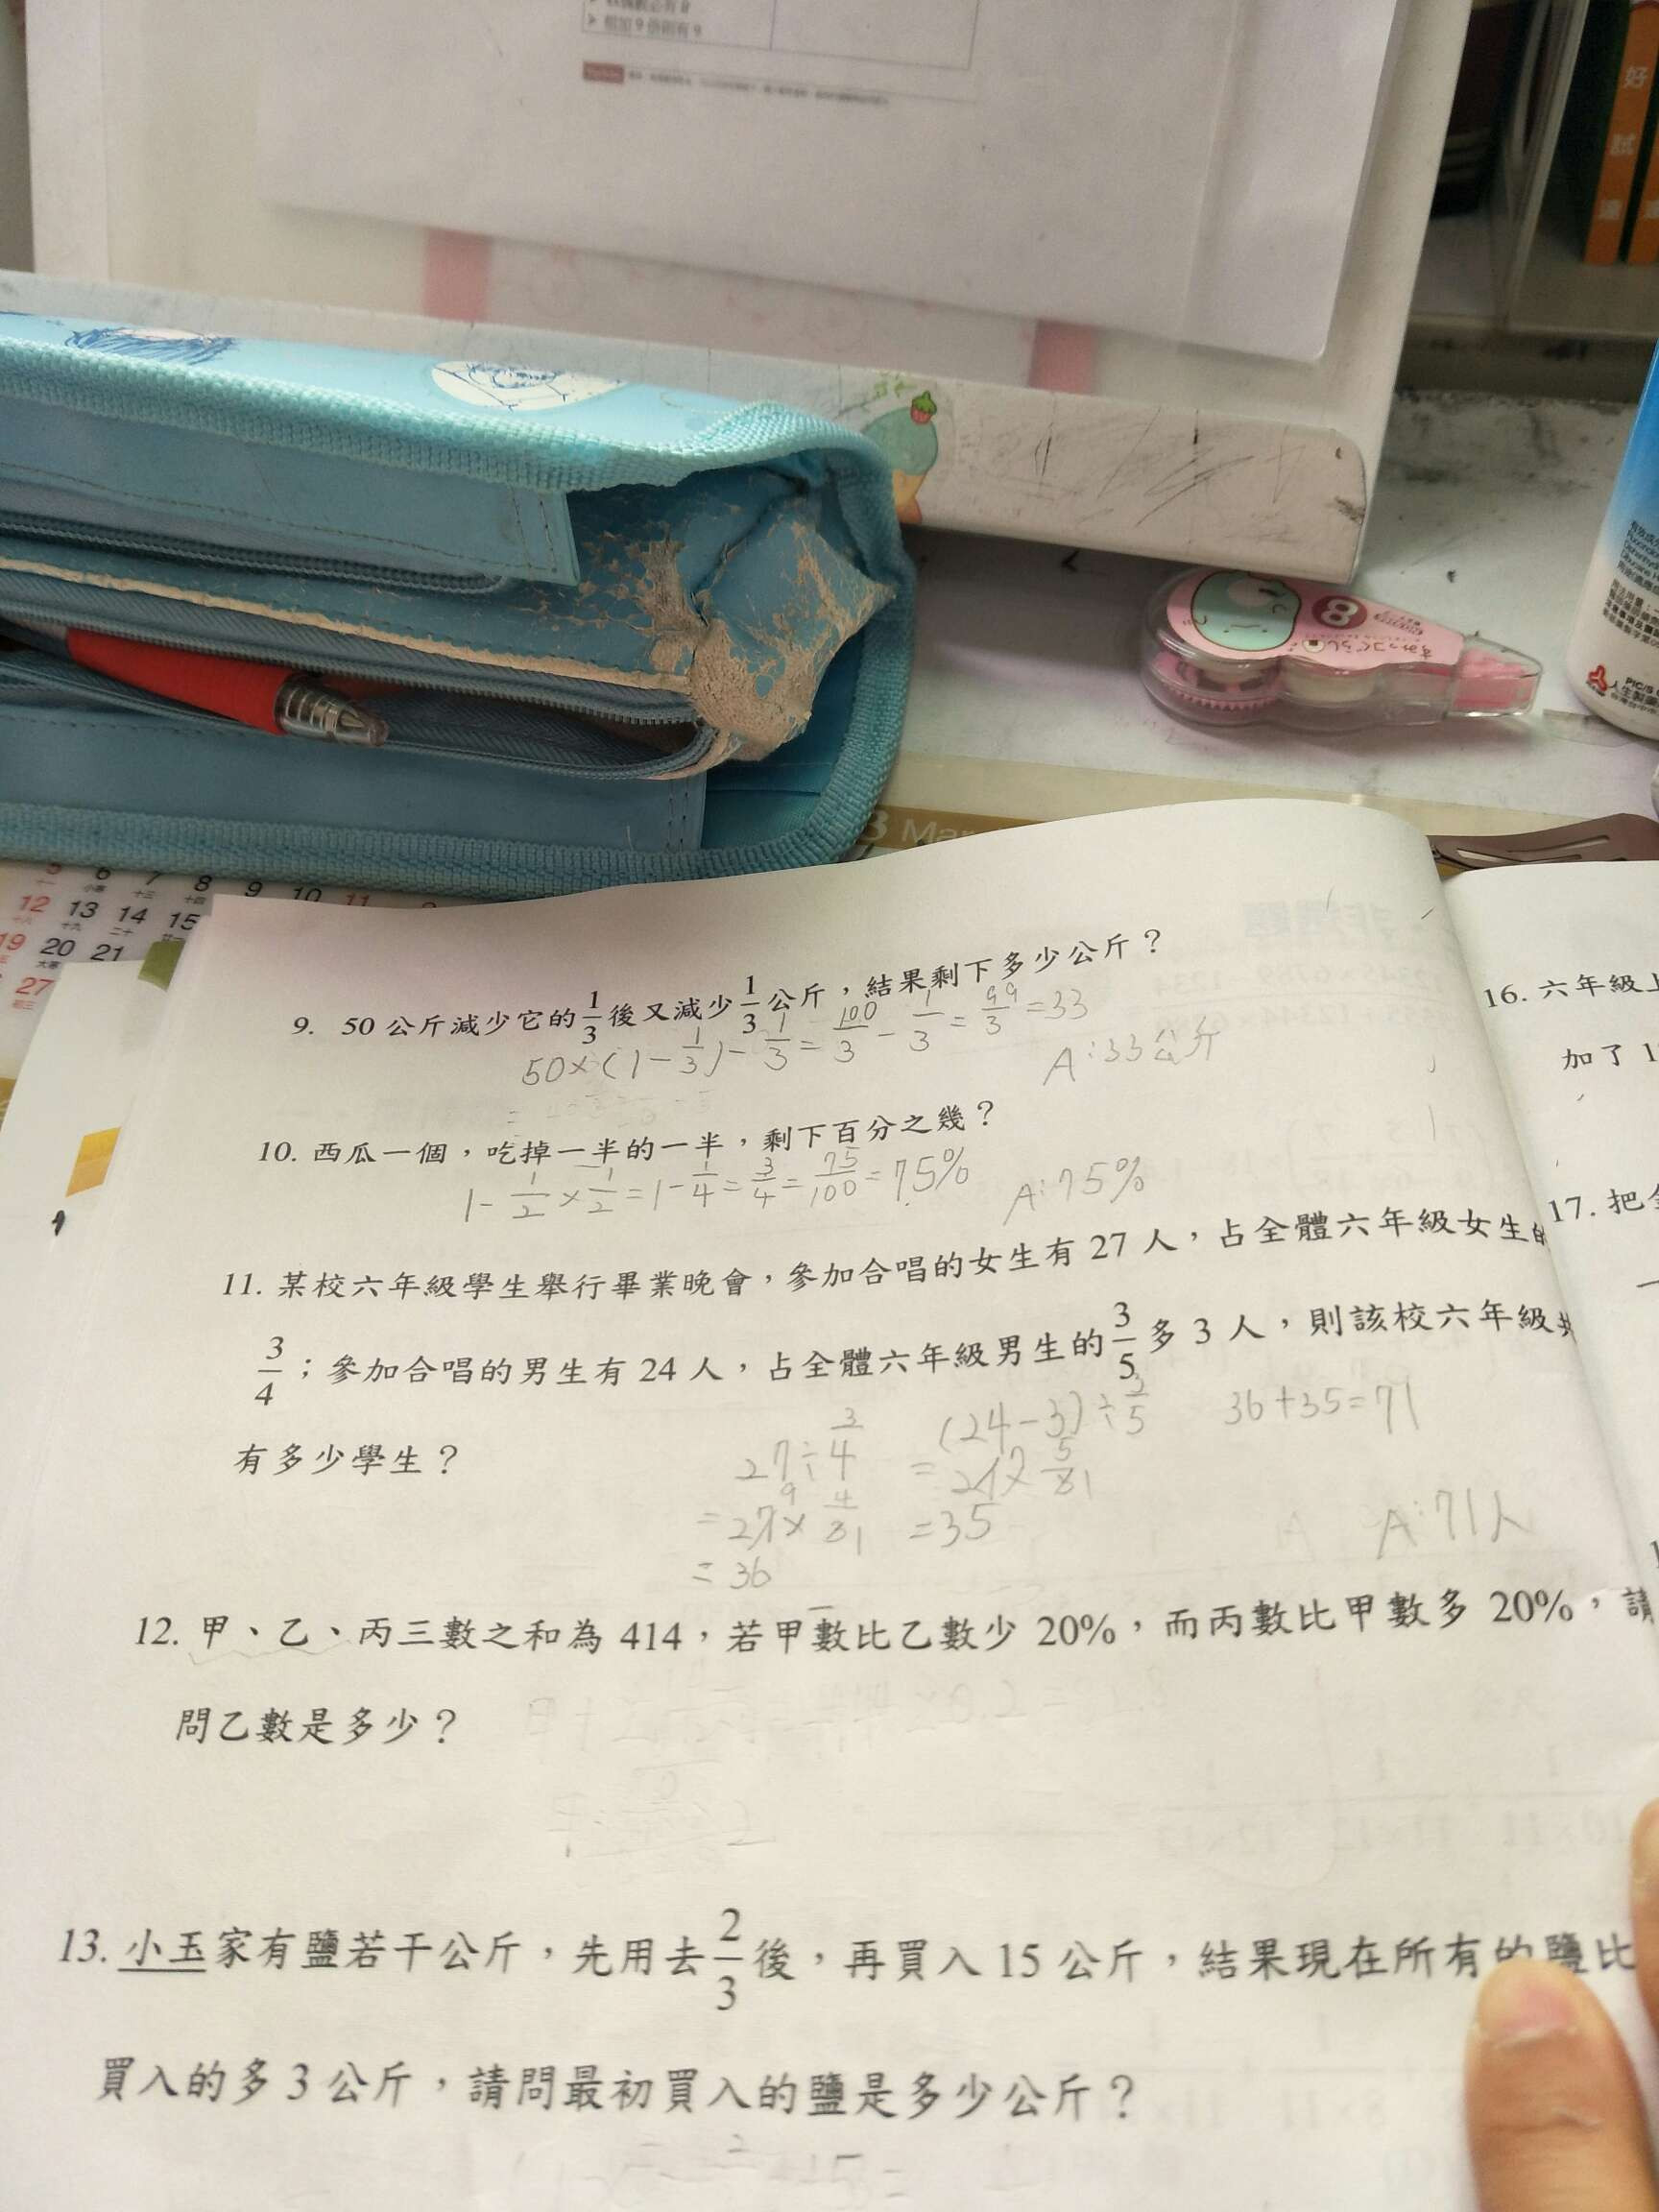 好
試
3 Mar
5 6 7 8 9 10 11
小寒
12 13 14 15
19 20 21
大寒
27
8
すみっコぐらし
PIC/S
人生製
9. 50 公斤減少它的1/3後又減少1/3公斤，結果剩下多少公斤？
50×(1-1/3)-1/3=100/3-1/3=99/3=33
A:33公斤
10. 西瓜一個，吃掉一半的一半，剩下百分之幾？
1-1/2×1/2=1-1/4=3/4=75/100=75%
A:75%
11. 某校六年級學生舉行畢業晚會，參加合唱的女生有 27 人，占全體六年級女生的
3/4；參加合唱的男生有 24 人，占全體六年級男生的3/5多 3 人，則該校六年級共
有多少學生？
27÷3/4
=27×4/3
=36
(24-3)÷3/5
=21×5/3
=35
36+35=71
A:71人
12. 甲、乙、丙三數之和為 414，若甲數比乙數少 20%，而丙數比甲數多 20%，請
問乙數是多少？
13. 小玉家有鹽若干公斤，先用去2/3後，再買入 15 公斤，結果現在所有的鹽比
買入的多 3 公斤，請問最初買入的鹽是多少公斤？
16. 六年級上
加了 1
17. 把